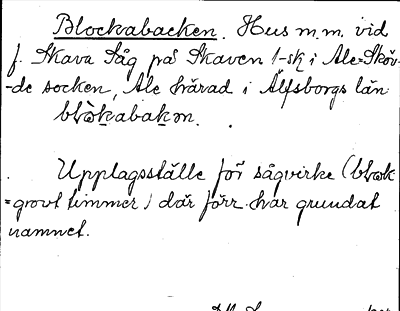 Blockabacken. Hus m.m. vid
f. Skava Såg på Skaven 1-sk i Ale-Sköv-
-de socken, Ale härad i Älfsborgs län
Upplagsställe för sågvirke (block
=grovt timmer) där förr har grundat
namnet.